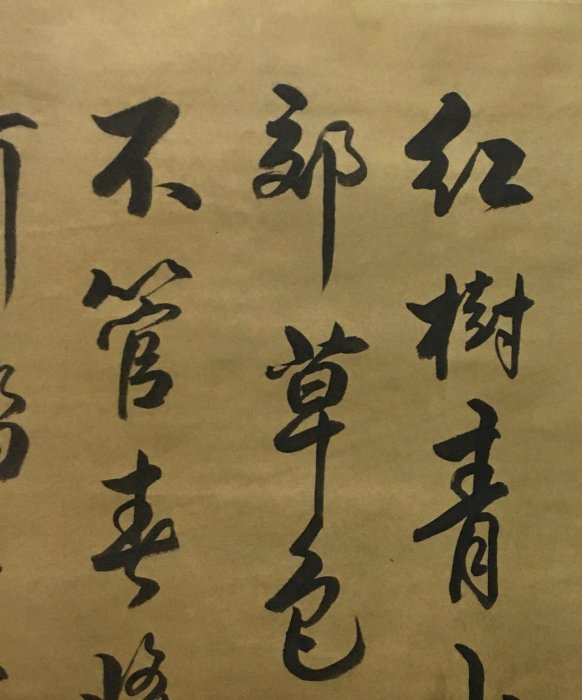 红樹青
郊草色
不管春將